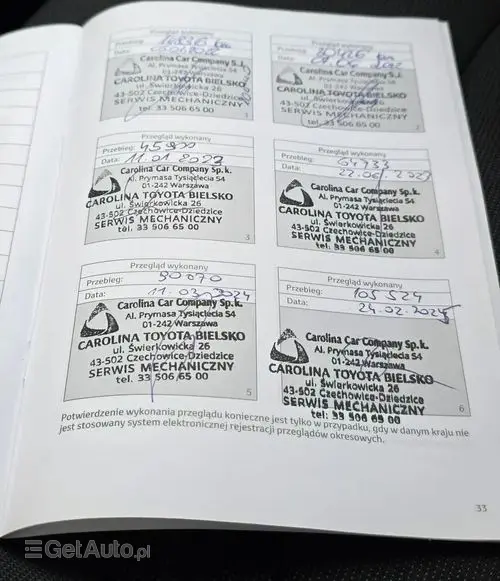 Przegląd wykonany
Przebieg:
Data:
Carolina Car Company S.j.
Al. Prymasa Tysiąclecia 54
01-242 Warszawa
CAROLINA TOYOTA BIELSKO
ul. Świerkowicka 26
43-502 Czechowice-Dziedzice
SERWIS MECHANICZNY
tel. 33 506 65 00
1
Przegląd wykonany
Przebieg:
Data:
Carolina Car Company S.j.
Al. Prymasa Tysiąclecia 54
01-242 Warszawa
CAROLINA TOYOTA BIELSKO
ul. Świerkowicka 26
43-502 Czechowice-Dziedzice
SERWIS MECHANICZNY
tel. 33 506 65 00
2
Przegląd wykonany
Przebieg: 45900
Data: 11.01.2023
Carolina Car Company Sp.k.
Al. Prymasa Tysiąclecia 54
01-242 Warszawa
CAROLINA TOYOTA BIELSKO
ul. Świerkowicka 26
43-502 Czechowice-Dziedzice
SERWIS MECHANICZNY
tel. 33 506 65 00
3
Przegląd wykonany
Przebieg:
Data: 22.06.2023
Carolina Car Company Sp.k.
Al. Prymasa Tysiąclecia 54
01-242 Warszawa
CAROLINA TOYOTA BIELSKO
ul. Świerkowicka 26
43-502 Czechowice-Dziedzice
SERWIS MECHANICZNY
tel. 33 506 65 00
4
Przegląd wykonany
Przebieg: 90070
Data: 11.03.2024
Carolina Car Company Sp.k.
Al. Prymasa Tysiąclecia 54
01-242 Warszawa
CAROLINA TOYOTA BIELSKO
ul. Świerkowicka 26
43-502 Czechowice-Dziedzice
SERWIS MECHANICZNY
tel. 33 506 65 00
5
Przegląd wykonany
Przebieg: 105524
Data: 24.02.2025
Carolina Car Company Sp.k.
Al. Prymasa Tysiąclecia 54
01-242 Warszawa
CAROLINA TOYOTA BIELSKO
ul. Świerkowicka 26
43-502 Czechowice-Dziedzice
SERWIS MECHANICZNY
tel. 33 506 65 00
6
Potwierdzenie wykonania przeglądu konieczne jest tylko w przypadku, gdy w danym kraju nie
jest stosowany system elektronicznej rejestracji przeglądów okresowych.
33
GetAuto.pl